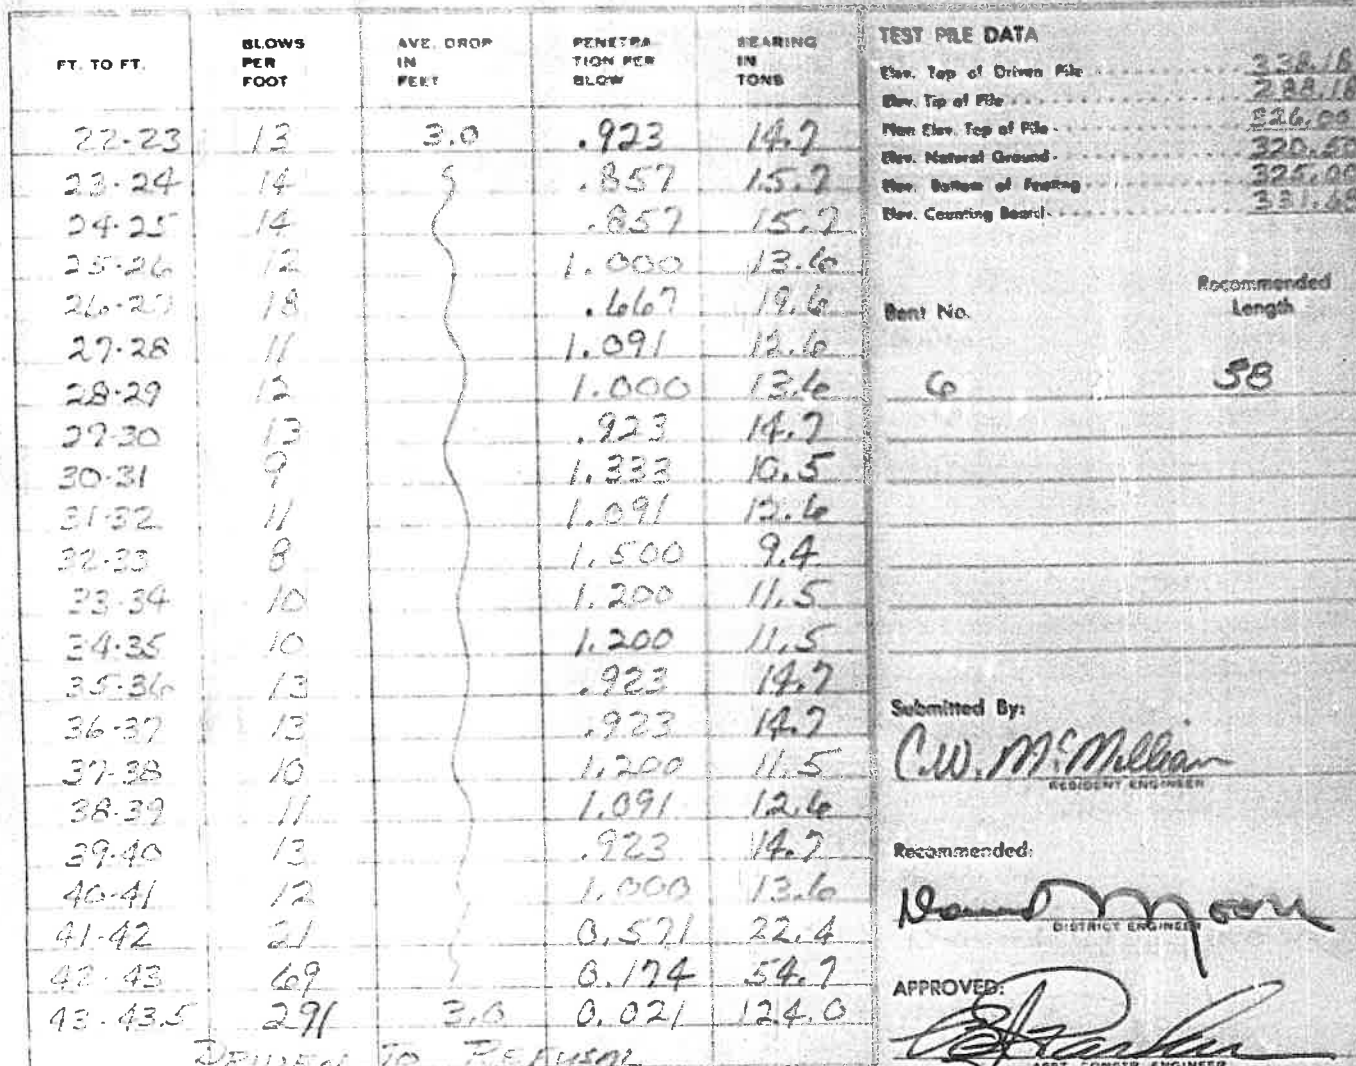 FT. TO FT. BLOWS PER FOOT AVE. DROP IN FEET PENETRATION PER BLOW BEARING IN TONS
22-23 13 3.0 .923 14.7
23-24 14 .857 15.7
24-25 14 .857 15.7
25-26 12 1.000 13.6
26-27 18 .667 19.6
27-28 11 1.091 12.6
28-29 12 1.000 13.6
29-30 13 .923 14.7
30-31 9 1.333 10.5
31-32 11 1.091 12.6
32-33 8 1.500 9.4
33-34 10 1.200 11.5
34-35 10 1.200 11.5
35-36 13 .923 14.7
36-37 13 .923 14.7
37-38 10 1.200 11.5
38-39 11 1.091 12.6
39-40 13 .923 14.7
40-41 12 1.000 13.6
41-42 21 0.571 22.4
42-43 69 0.174 54.7
43-43.5 291 3.0 0.021 124.0
DRIVEN TO REFUSAL
TEST PILE DATA
Elev. Top of Driven Pile 338.18
Elev. Tip of Pile 288.18
Plan Elev. Top of Pile 326.00
Elev. Natural Ground 320.50
Elev. Bottom of Footing 325.00
Elev. Counting Board
Bent No. Recommended Length
6 38
Submitted By:
C.W. McMillian
RESIDENT ENGINEER
Recommended:
DISTRICT ENGINEER
APPROVED:
ASST. CONSTR. ENGINEER